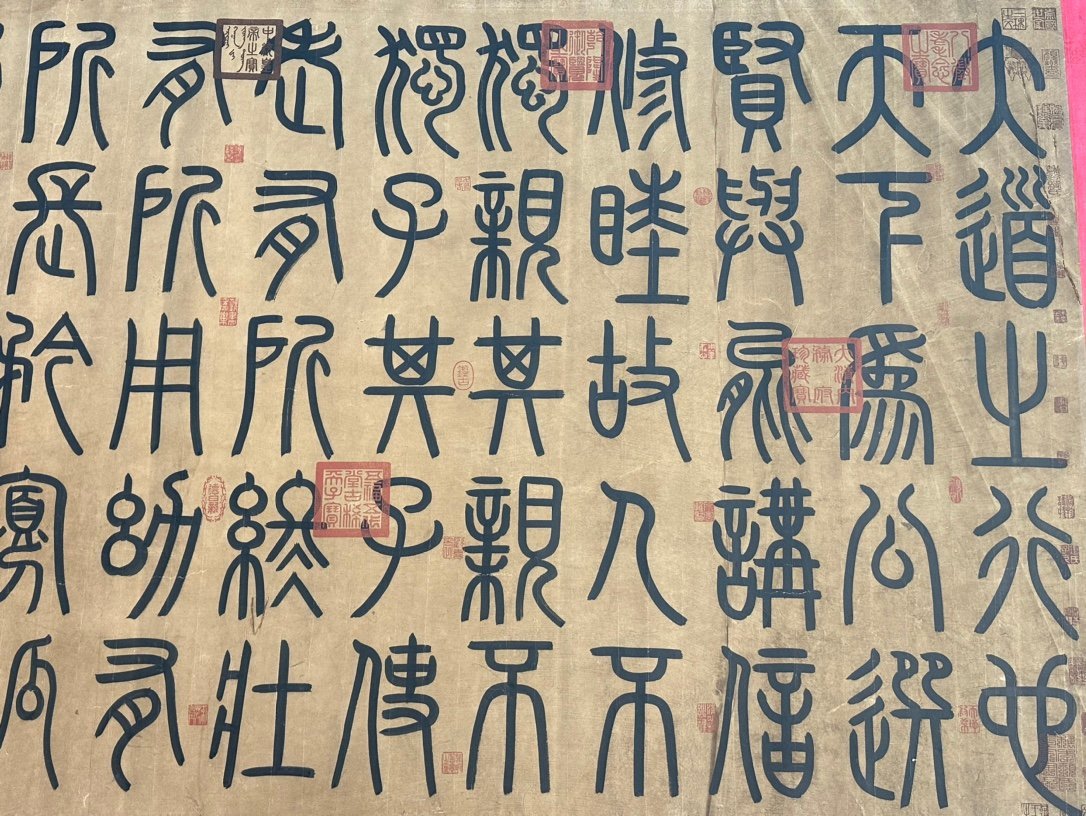 大道之行也
天下爲公選
賢與能講信
修睦故人不
獨親其親不
獨子其子使
老有所終壯
有所用幼有
所長矜寡